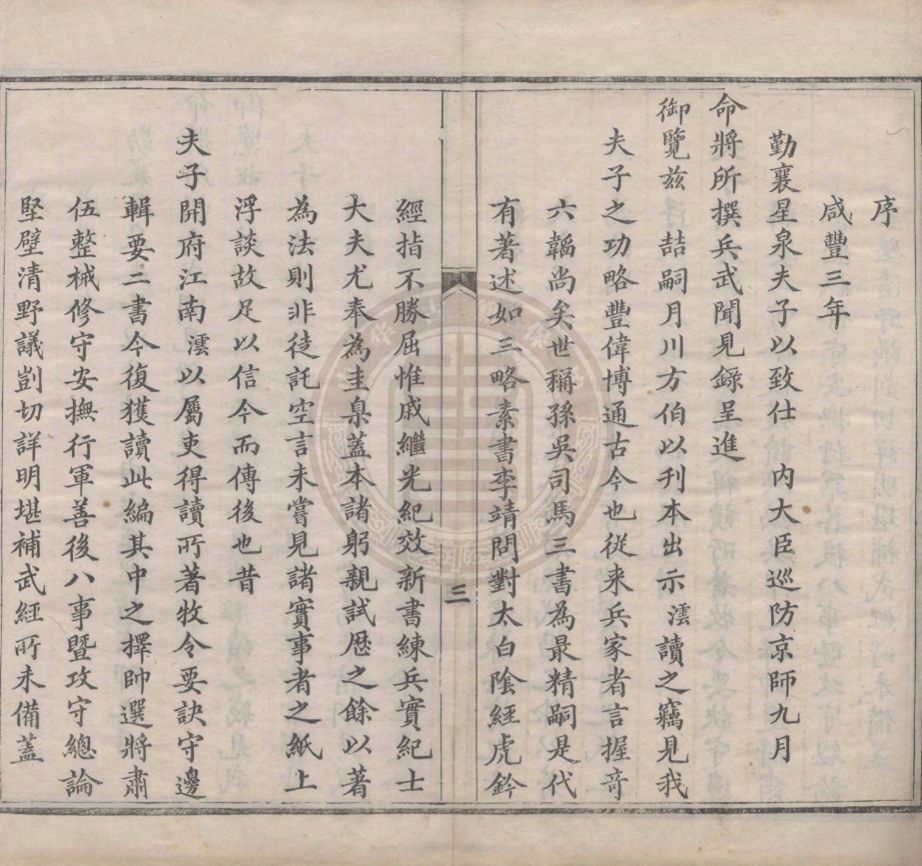 序
咸豐三年
勤襄星泉夫子以致仕　內大臣巡防京師九月
命將所撰兵武聞見錄呈進
御覽茲　喆嗣月川方伯以刊本出示澐讀之竊見我
夫子之功略豐偉博通古今也從来兵家者言握竒
六韜尚矣世稱孫吳司馬三書為最精嗣是代
有著述如三略素書李靖問對太白陰經虎鈐
三
經指不勝屈惟戚繼光紀效新書練兵實紀士
大夫尤奉為圭臬蓋本諸躬親試歴之餘以著
為法則非徒託空言未嘗見諸實事者之紙上
浮談故足以信今而傳後也昔
夫子開府江南澐以屬吏得讀所著牧令要訣守邊
輯要二書今復獲讀此編其中之擇帥選將肅
伍整械修守安撫行軍善後八事暨攻守總論
堅壁清野議剴切詳明堪補武經所未備蓋